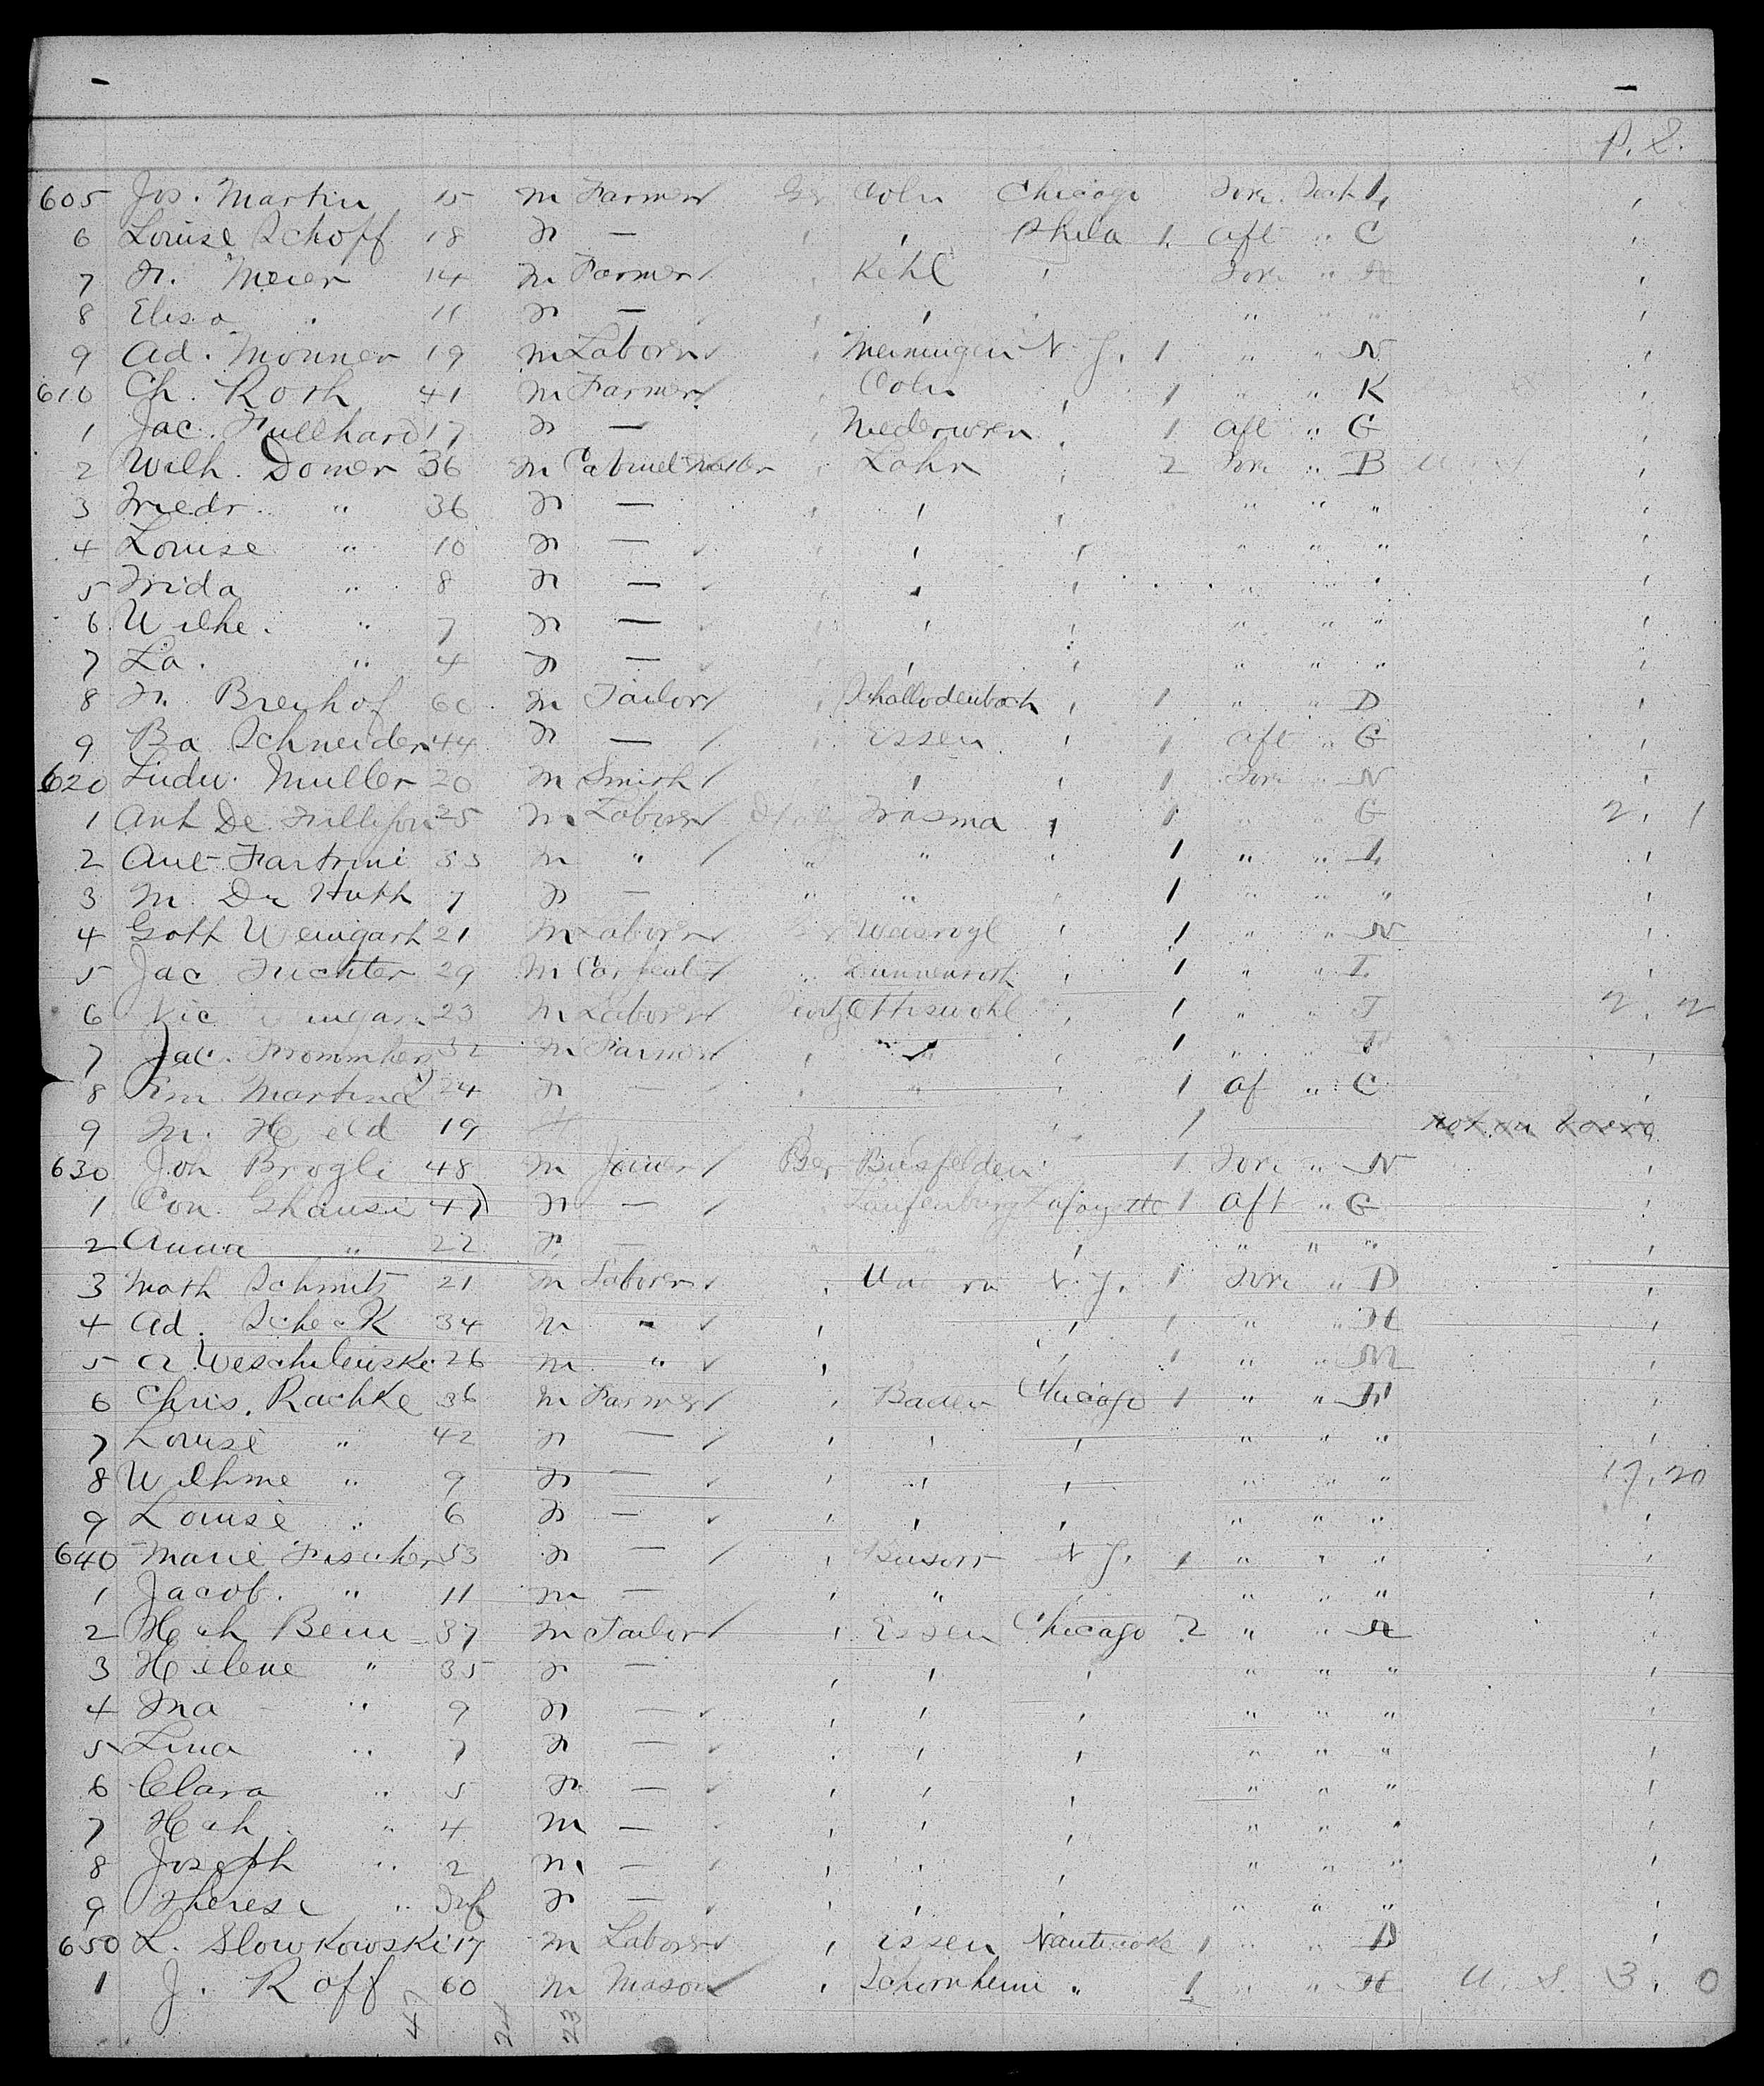 P. S.
605 Jos. Martin 15 m Farmer Ger Coln Chicago Fore Deck L
6 Louise Schoff 18 F — , , Phila 1. aft " C
7 Fr. Meier 14 m Farmer , Kehl , Fore "
8 Elisa " 11 F — , , , " " "
9 Ad. Monner 19 m Laborer , Meiningen N. Y. 1 " " N
610 Ch. Roth 41 m Farmer , Coln , 1 " " K
1 Jac. Fullhard 17 F — , , 1 aft " G
2 Wilh. Domer 36 m Cabinetmaker , Lahr , 2 Fore " B U. S.
3 Friedr. " 36 F — , , , " " "
4 Louise " 10 F — , , , " " "
5 Frida " 8 F — , , , " " "
6 Wilhe. " 7 F — , , , " " "
7 La. " 4 F — , , , " " "
8 Fr. Breyhof 60 m Tailor , Schallodenbach , 1 " " D
9 Ba Schneider 44 F — , Essen , 1 aft " G
620 Ludw. Muller 20 m Smith , , , 1 Fore " N
1 Ant De 25 m Laborer Italy Frasma , 1 " " G 2. 1
2 Ant Fartrini 33 m " " " , 1 " " L
3 m. De Huth 7 F — " " " 1 " " "
4 Gott Weingart 21 m Laborer , , 1 " " N
5 Jac Fuchter 29 m Carpenter " , 1 " " I
6 Vic 23 m Laborer , 1 " " 2. 2
7 Jac. Frommherz 32 m Farmer , " , 1 " "
8 Em Martina 24 F — , " , 1 af " C
9 m. Held 19 , , 1 not on board
630 Joh Brogli 48 m Joiner Ger 1 Fore " N
1 Con. Ghausi 47 F — , Laufenburg Lafayette 1 aft " G
2 Anna " 22 F. — " " , " " "
3 Math Schmitz 21 m Laborer , N. Y. 1 Fore " D
4 Ad. Scheck 34 m " , , 1 " " H
5 A Weschlenske 26 m " , , 1 " " M
6 Chris. Rachke 36 m Farmer , Baden Chicago 1 " " F
7 Louise " 42 F — , , , " " "
8 Wilhme " 9 F — , , , " " " 17. 20
9 Louise " 6 F — , , , " " "
640 Marie Fischer 53 F — , N. Y. 1 " " "
1 Jacob. " 11 m — , " , " " "
2 Hch Bein 37 m Tailor , Essen Chicago 2 " " A
3 Helene " 35 F — , , , " " "
4 Ma " 9 F — , , , " " "
5 Lina " 7 F — , , , " " "
6 Clara " 5 F — , , , " " "
7 Hch " 4 m — , , , " " "
8 Joseph " 2 m — , , , " " "
9 Therese " Inf F — , , , " " "
650 L. Slowkowski 17 m Laborer , Essen Nanticoke 1 " " D
1 J. Roff 60 m Mason , Schornheim " 1 " " H U. S. 3. 0
47 24 23